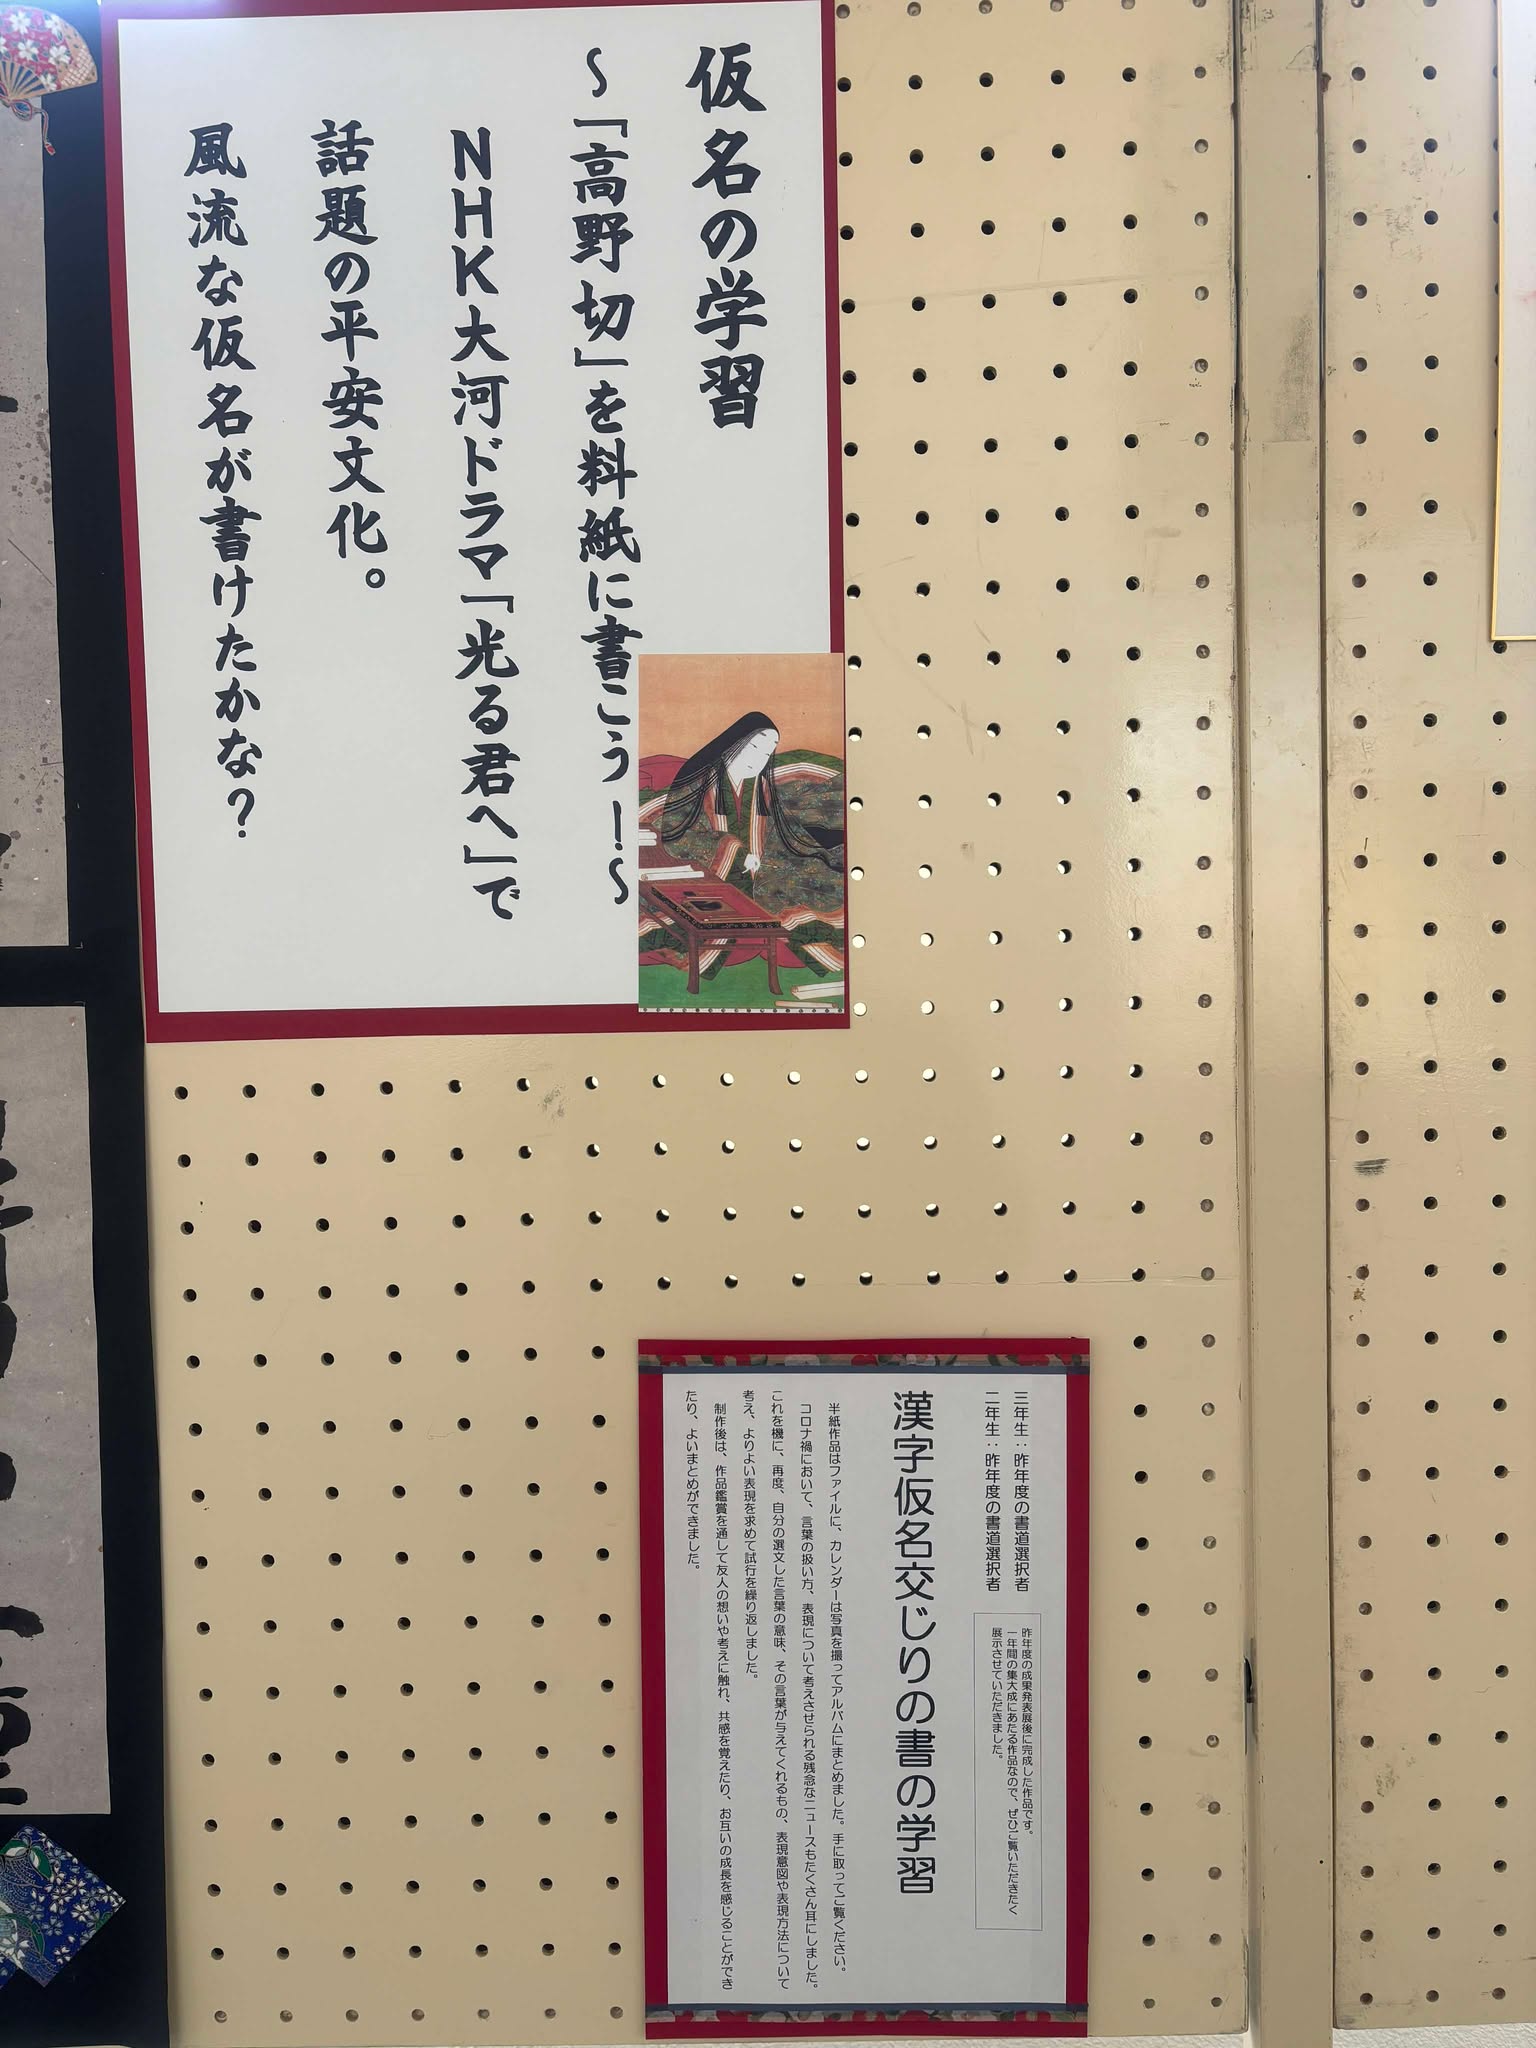 仮名の学習
～「高野切」を料紙に書こう！～
NHK大河ドラマ「光る君へ」で
話題の平安文化。
風流な仮名が書けたかな？
三年生：昨年度の書道選択者
二年生：昨年度の書道選択者
昨年度の成果発表展後に完成した作品です。
一年間の集大成にあたる作品なので、ぜひご覧いただきたく
展示させていただきました。
漢字仮名交じりの書の学習
半紙作品はファイルに、カレンダーは写真を撮ってアルバムにまとめました。手に取ってご覧ください。
コロナ禍において、言葉の扱い方、表現について考えさせられる残念なニュースもたくさん耳にしました。
これを機に、再度、自分の選文した言葉の意味、その言葉が与えてくれるもの、表現意図や表現方法について
考え、よりよい表現を求めて試行を繰り返しました。
制作後は、作品鑑賞を通して友人の想いや考えに触れ、共感を覚えたり、お互いの成長を感じることができ
たり、よいまとめができました。